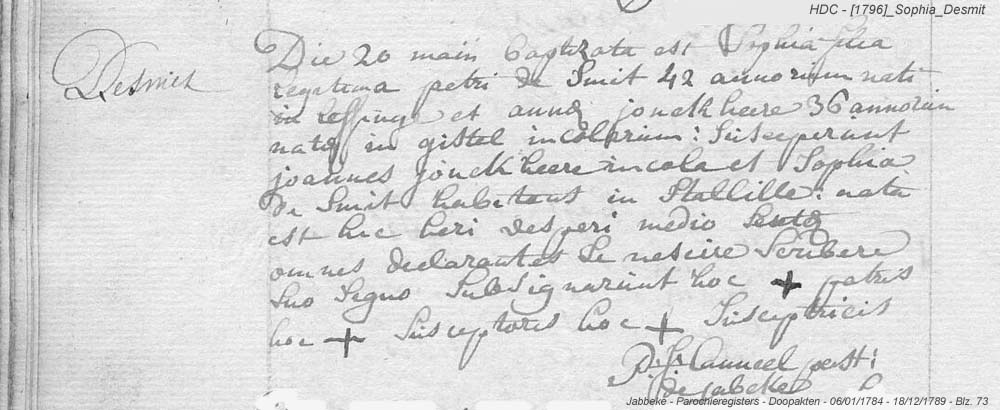 HDC - [1796]_Sophia_Desmit
Desmet
Die 20 maii baptizata est Sophia filia
legitima petri de Smit 42 annorum nati
in leffinge et annæ jonckheere 36 annorum
natæ in gistel incolarum: Susceperunt
joannes jonckheere incola et Sophia
de Smit habitans in Stallille: nata
est hic heri vesperi medio Sextæ
omnes declarantes Se nescire Scribere
Suo Segno SubSignarunt hoc + patris
hoc + Susceptoris hoc + Susceptricis
past:
de jabeke
Jabbeke - Parochieregisters - Doopakten - 06/01/1784 - 18/12/1789 - Blz. 73